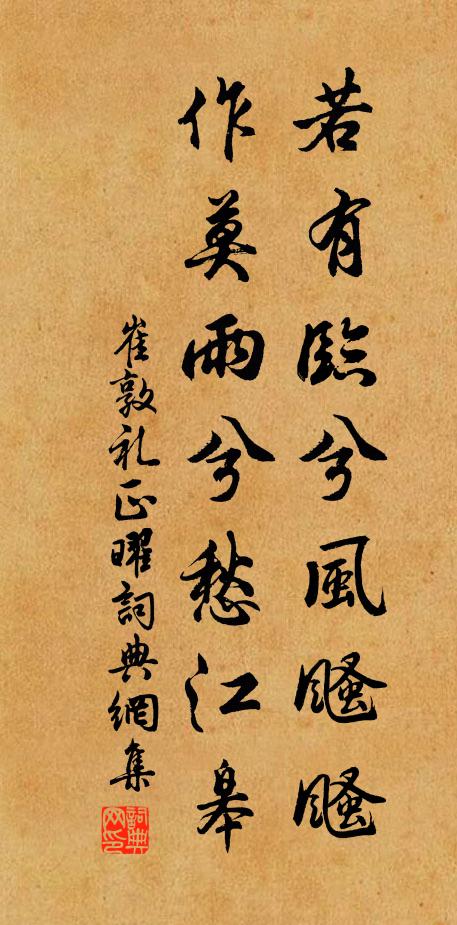 若有臨兮風颾颾
作莫雨兮愁江皋
崔敦礼正曜詞典網集
詞典网印